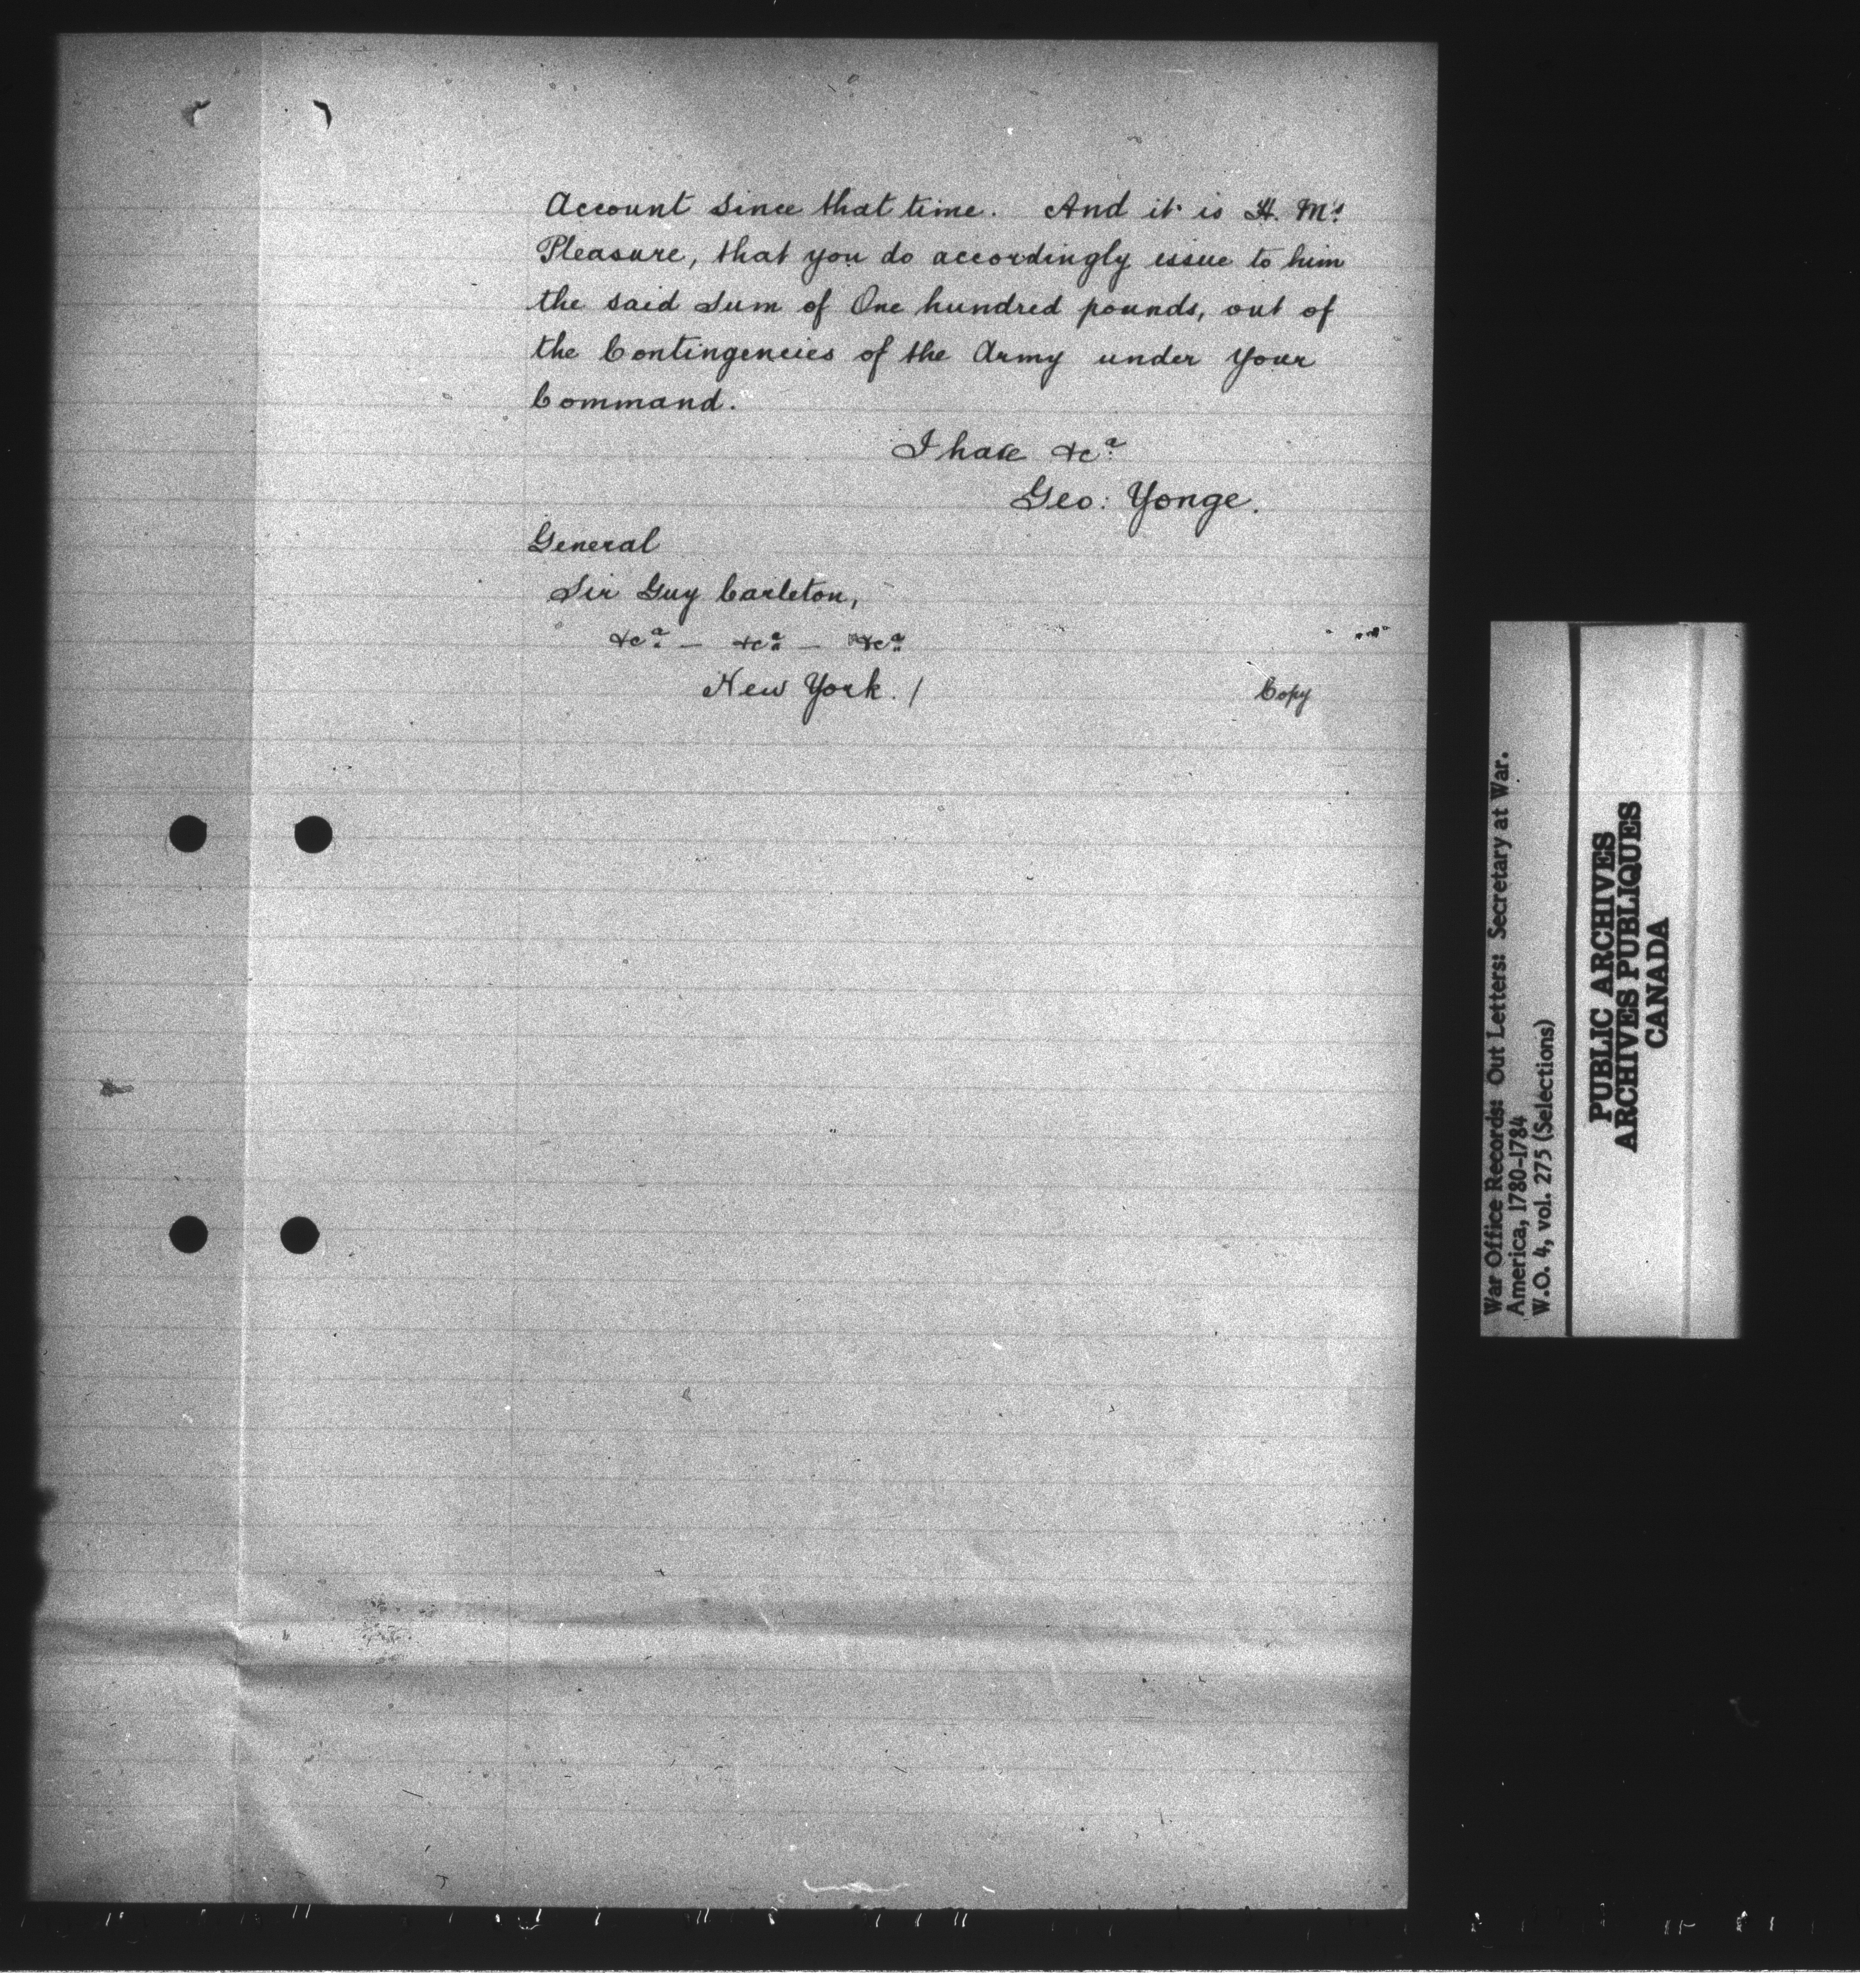 Account since that time. And it is H. M's
Pleasure, that you do accordingly issue to him
the said Sum of One hundred pounds, out of
the Contingencies of the Army under your
Command.
I have &c.ª
Geo: Yonge.
General
Sir Guy Carleton,
&c.ª — &c.ª — &c.ª
New York. /
Copy
War Office Records: Out Letters: Secretary at War.
America, 1780-1784
W.O. 4, vol. 275 (Selections)
PUBLIC ARCHIVES
ARCHIVES PUBLIQUES
CANADA